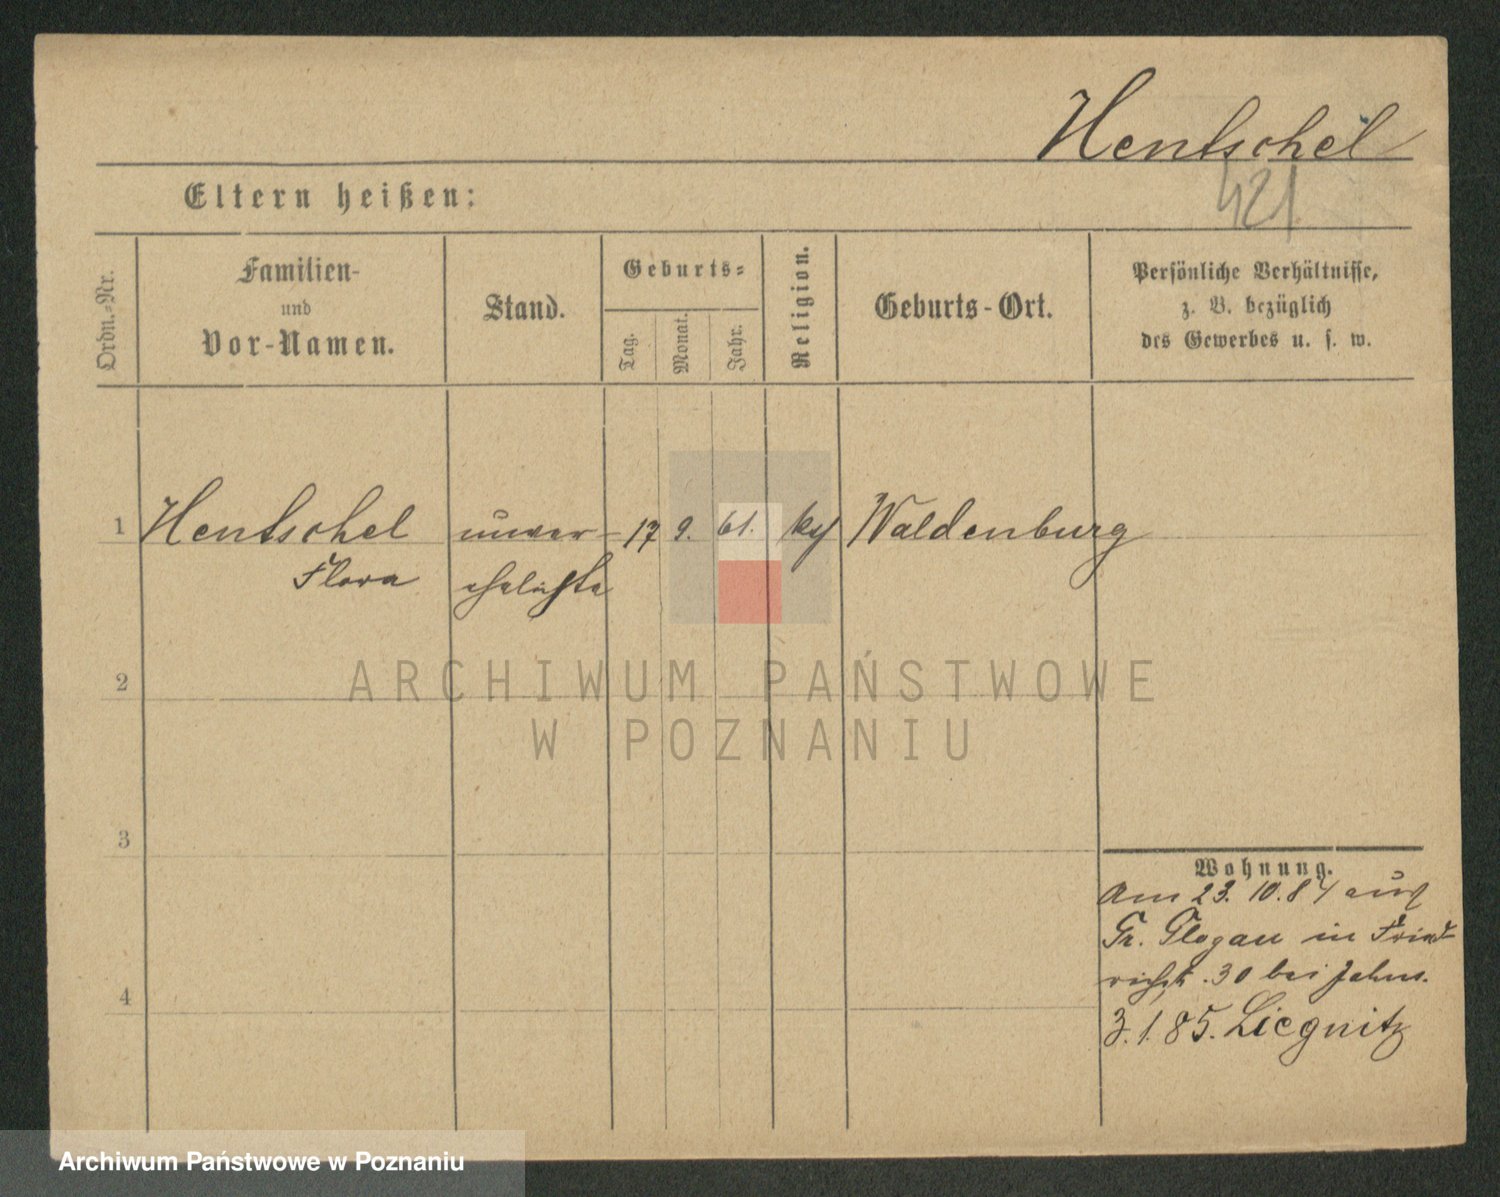 Hentschel
421
Eltern heißen:
Ordn.-Nr.
Familien-
und
Vor-Namen.
Stand.
Geburts-
Tag.
Monat.
Jahr.
Religion.
Geburts-Ort.
Persönliche Verhältnisse,
z. B. bezüglich
des Gewerbes u. s. w.
1 Hentschel unver- 17 9. 61. Waldenburg
Flora ehelichte
2
3
4
Wohnung.
Am 23. 10. 84 aus
Gr. Glogau in Fried-
richstr. 30 bei Jahns.
3. 1. 85. Liegnitz
ARCHIWUM PAŃSTWOWE
W POZNANIU
Archiwum Państwowe w Poznaniu